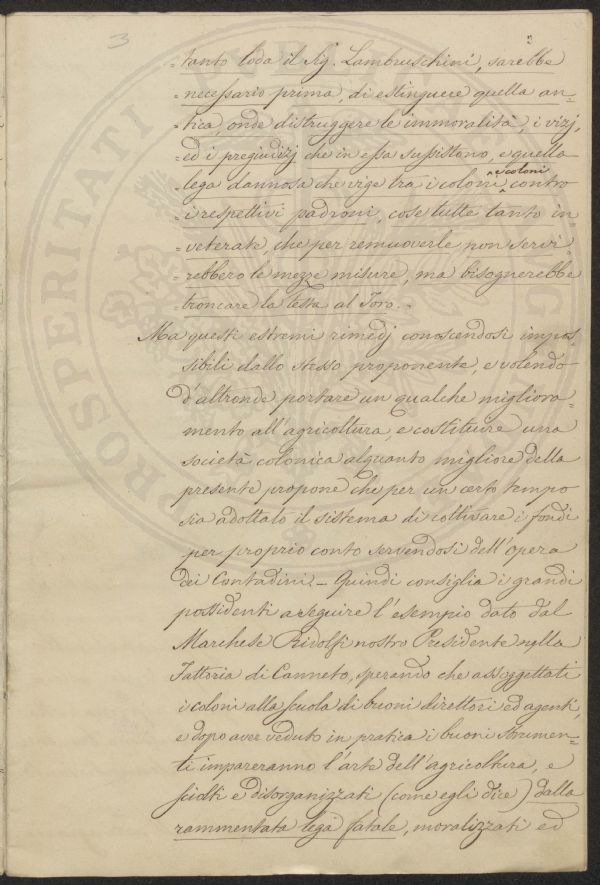 3
=tanto loda il Sig. Lambruschini, sarebbe
=necessario prima, di estinguere quella an=
=tica, onde distruggere le immoralità, i vizj,
=ed i pregiudizj che in essa sussistono, e quella
e coloni
=lega dannosa che vige tra i coloni, contro
=i respettivi padroni, cose tutte tanto in=
=veterate, che per remuoverle non servi=
=rebbero le mezze misure, ma bisognerebbe
=troncare la testa al Toro. -
Ma questi estremi rimedj conoscendosi impos=
sibili dallo stesso proponente, e volendo
d'altronde portare un qualche migliora=
mento all'agricoltura, e costituire una
società colonica alquanto migliore della
presente propone che per un certo tempo
sia adottato il sistema di coltivare i fondi
per proprio conto servendosi dell'opera
dei Contadini. - Quindi consiglia i grandi
possidenti a seguire l'esempio dato dal
Marchese Ridolfi nostro Presidente nella
Fattoria di Canneto, sperando che assoggettati
i coloni alla scuola di buoni direttori ed agenti,
e dopo aver veduto in pratica i buoni strumen=
ti impareranno l'arte dell'agricoltura, e
sciolti e disorganizzati (come egli dice) dalla
rammentata lega fatale, moralizzati ed
PROSPERITATI PUBLICAE AUG